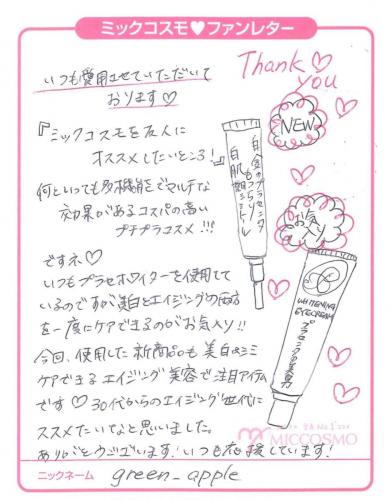 ミックコスモ♥ファンレター
Thank♡
you
いつも愛用させていただいて
おります♡
NEW
『ミックコスモを友人に
オススメしたいところ!』
何といっても多機能でマルチな
効果があるコスパの高い
プチプラコスメ!!!
白金のプラセンタ
もちっ
お気に入り
ですネ♡
いつもプラセホワイターを使用して
いるのですが美白とエイジングの両方
を一度にケアできるのがお気入り!!
WHITENING
EYECREAM
プラセンタの美容力
今回、使用した新商品も美白&シミ
ケアできるエイジング美容で注目アイテム
です♡30代からのエイジング世代に
ススメたいなと思いました。
MICCOSMO
ありがとウございます!いつも応援しています!
ニックネーム green_apple